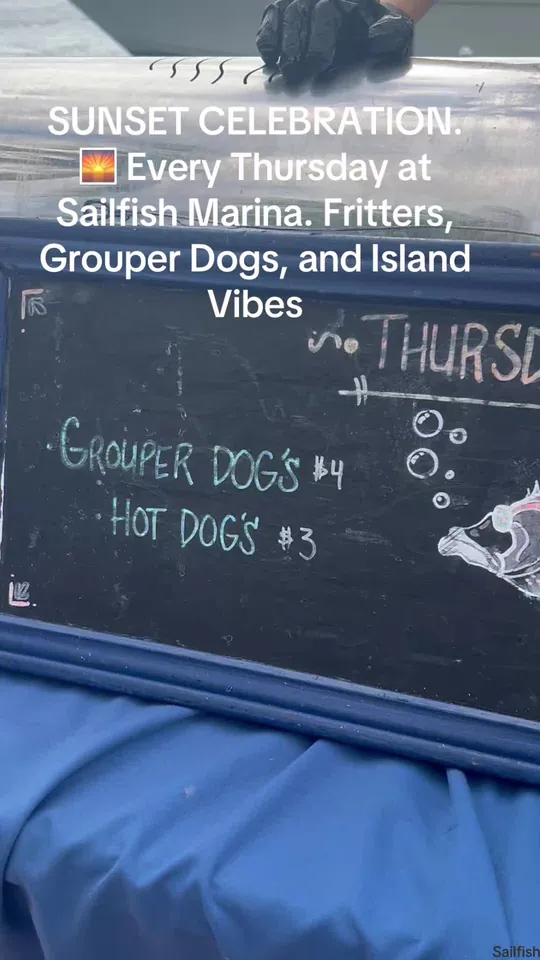 SUNSET CELEBRATION.
🌅 Every Thursday at
Sailfish Marina. Fritters,
Grouper Dogs, and Island
Vibes
THURSD
GROUPER DOG'S $4
HOT DOG'S $3
Sailfish